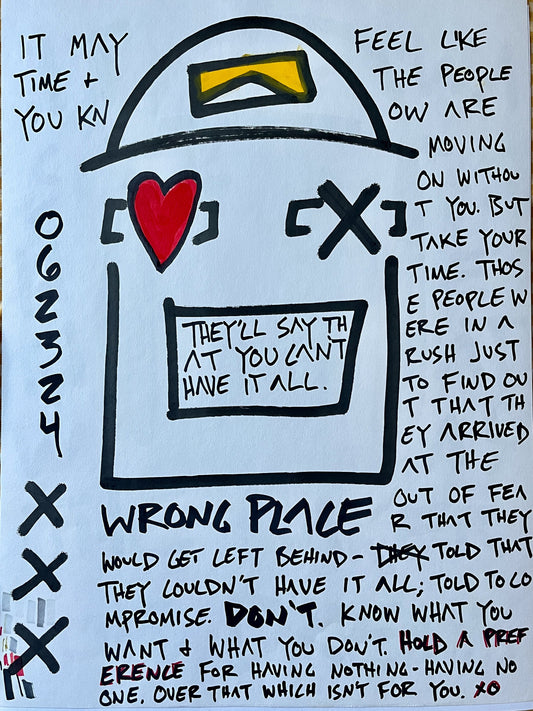 IT MAY FEEL LIKE
TIME + THE PEOPLE
YOU KN OW ARE
MOVING
ON WITHOU
T YOU. BUT
TAKE YOUR
TIME. THOS
E PEOPLE W
ERE IN A
RUSH JUST
TO FIND OU
T THAT TH
EY ARRIVED
AT THE
WRONG PLACE
OUT OF FEA
R THAT THEY
WOULD GET LEFT BEHIND - THEY TOLD THAT
THEY COULDN'T HAVE IT ALL; TOLD TO CO
MPROMISE. DON'T. KNOW WHAT YOU
WANT + WHAT YOU DON'T. HOLD A PREF
ERENCE FOR HAVING NOTHING - HAVING NO
ONE. OVER THAT WHICH ISN'T FOR YOU. XO
[ ] [X]
THEY'LL SAY TH
AT YOU CAN'T
HAVE IT ALL.
0
6
2
3
2
4
X
X
X